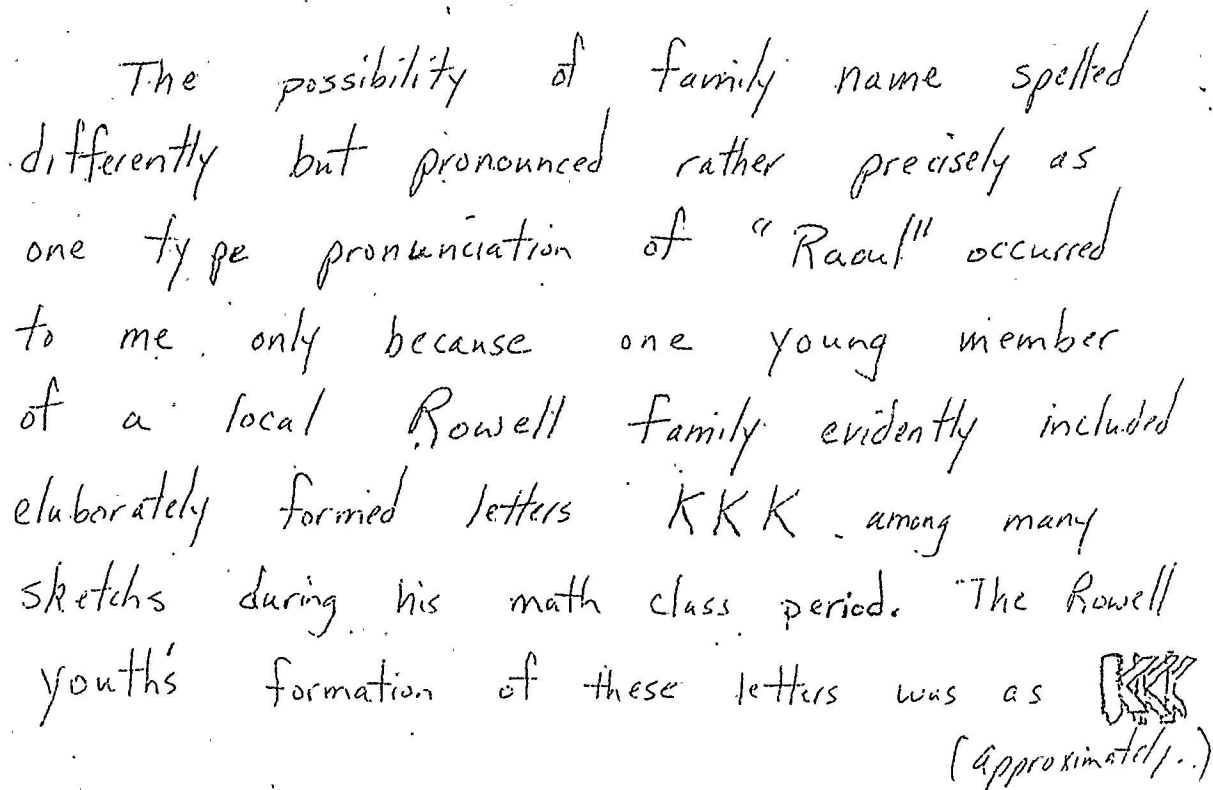 The possibility of family name spelled
differently but pronounced rather precisely as
one type pronunciation of "Raoul" occurred
to me only because one young member
of a local Rowell family evidently included
elaborately formed letters KKK among many
sketchs during his math class period. The Rowell
youth's formation of these letters was as KKK
(approximately..)